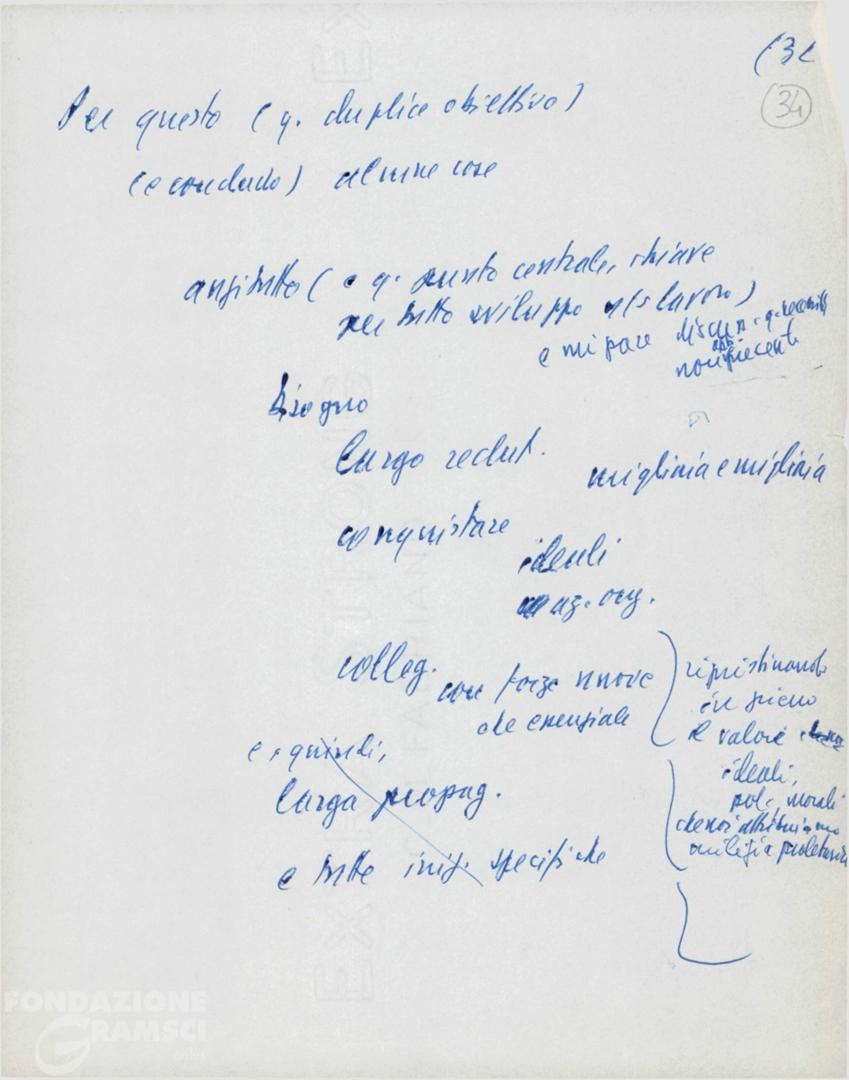 (32
(34)
Per questo (q. duplice obiettivo)
(e concludo) alcune cose
anzitutto ( e q. punto centrale, chiave
per tutto sviluppo n/s lavoro)
e mi pare
non
Bisogno
largo reclut.
migliaia e migliaia
conquistare
ideali
az. org.
colleg.
con forze nuove
che essenziale
ripristinando
in pieno
il valore
ideali,
pol. morali
che noi attribuiamo
milizia proletaria
e, quindi,
larga propag.
e tutte iniz. specifiche
EXTRA STRONG
FABRIANO
FONDAZIONE
GRAMSCI
onlus